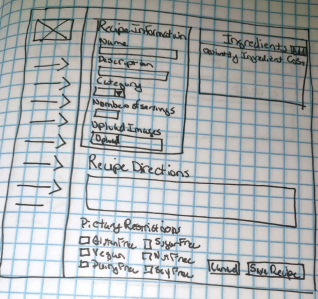 Recipe Information
Name
Description
Category
Number of servings
Upload Images
Upload
Ingredients
Quantity Ingredient
Recipe Directions
Dietary Restrictions
Gluten Free
Sugar Free
Vegan
Nut Free
Dairy Free
Soy Free
Cancel
Save Recipe